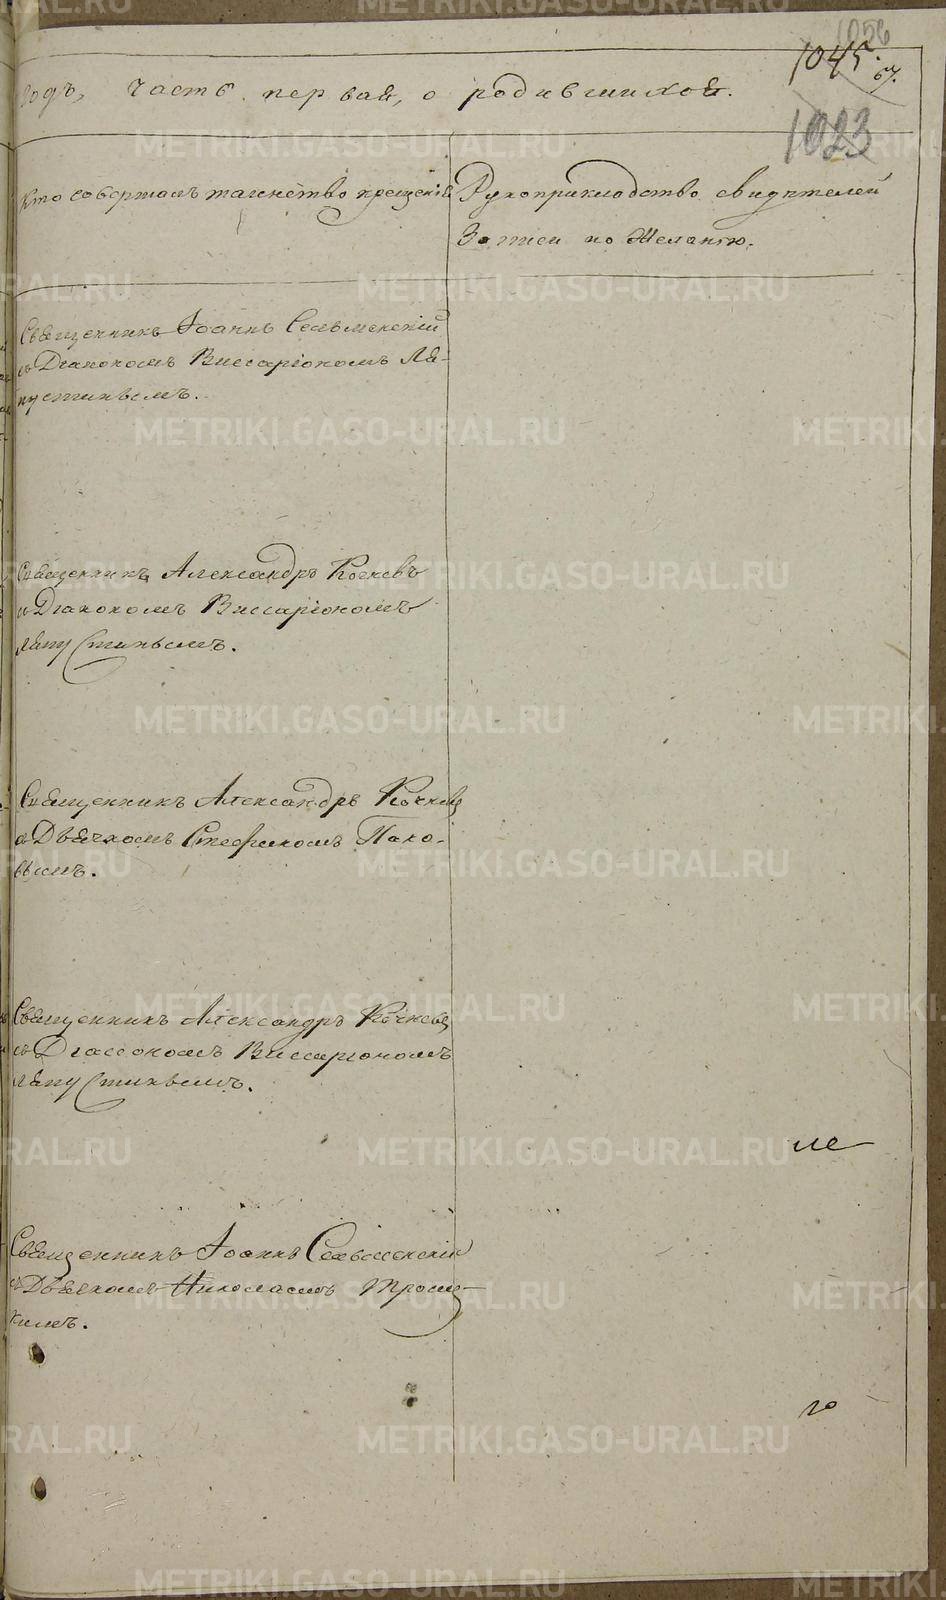 1056
1045.
67.
годъ, часть первая, о родившихся.
1023
Кто совершалъ таинство крещенія
Рукоприкладство свидѣтелей
записи по желанію.
Священникъ Іоаннъ Сельменскій
съ Діакономъ Виссаріономъ Ля-
пустинымъ.
Священникъ Александръ Кочневъ
съ Діакономъ Виссаріономъ
Ляпустинымъ.
Священникъ Александръ Кочневъ
съ Дьячкомъ Стефаномъ Попо-
вымъ.
Священникъ Александръ Кочневъ
съ Діакономъ Виссаріономъ
Ляпустинымъ.
Священникъ Іоаннъ Сельменскій
съ Дьячкомъ Николаемъ Трои-
кимъ.
METRIKI.GASO-URAL.RU